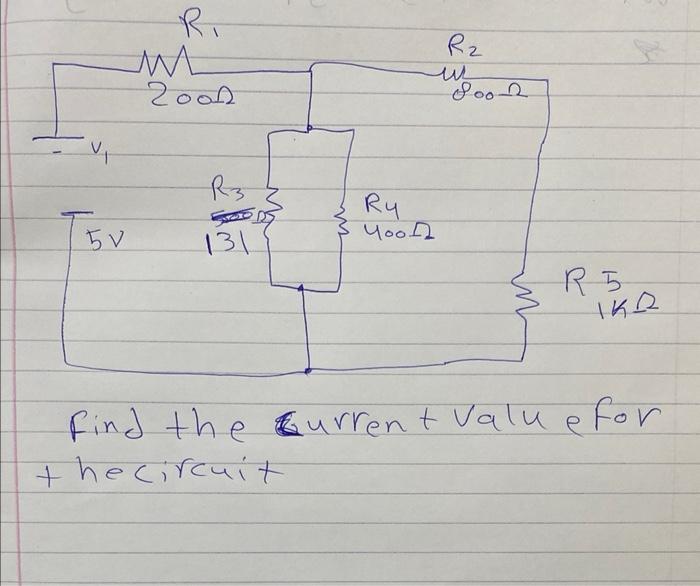 R1
200Ω
R2
800Ω
V1
R3
131
R4
400Ω
5V
R5
1KΩ
find the current value for
the circuit